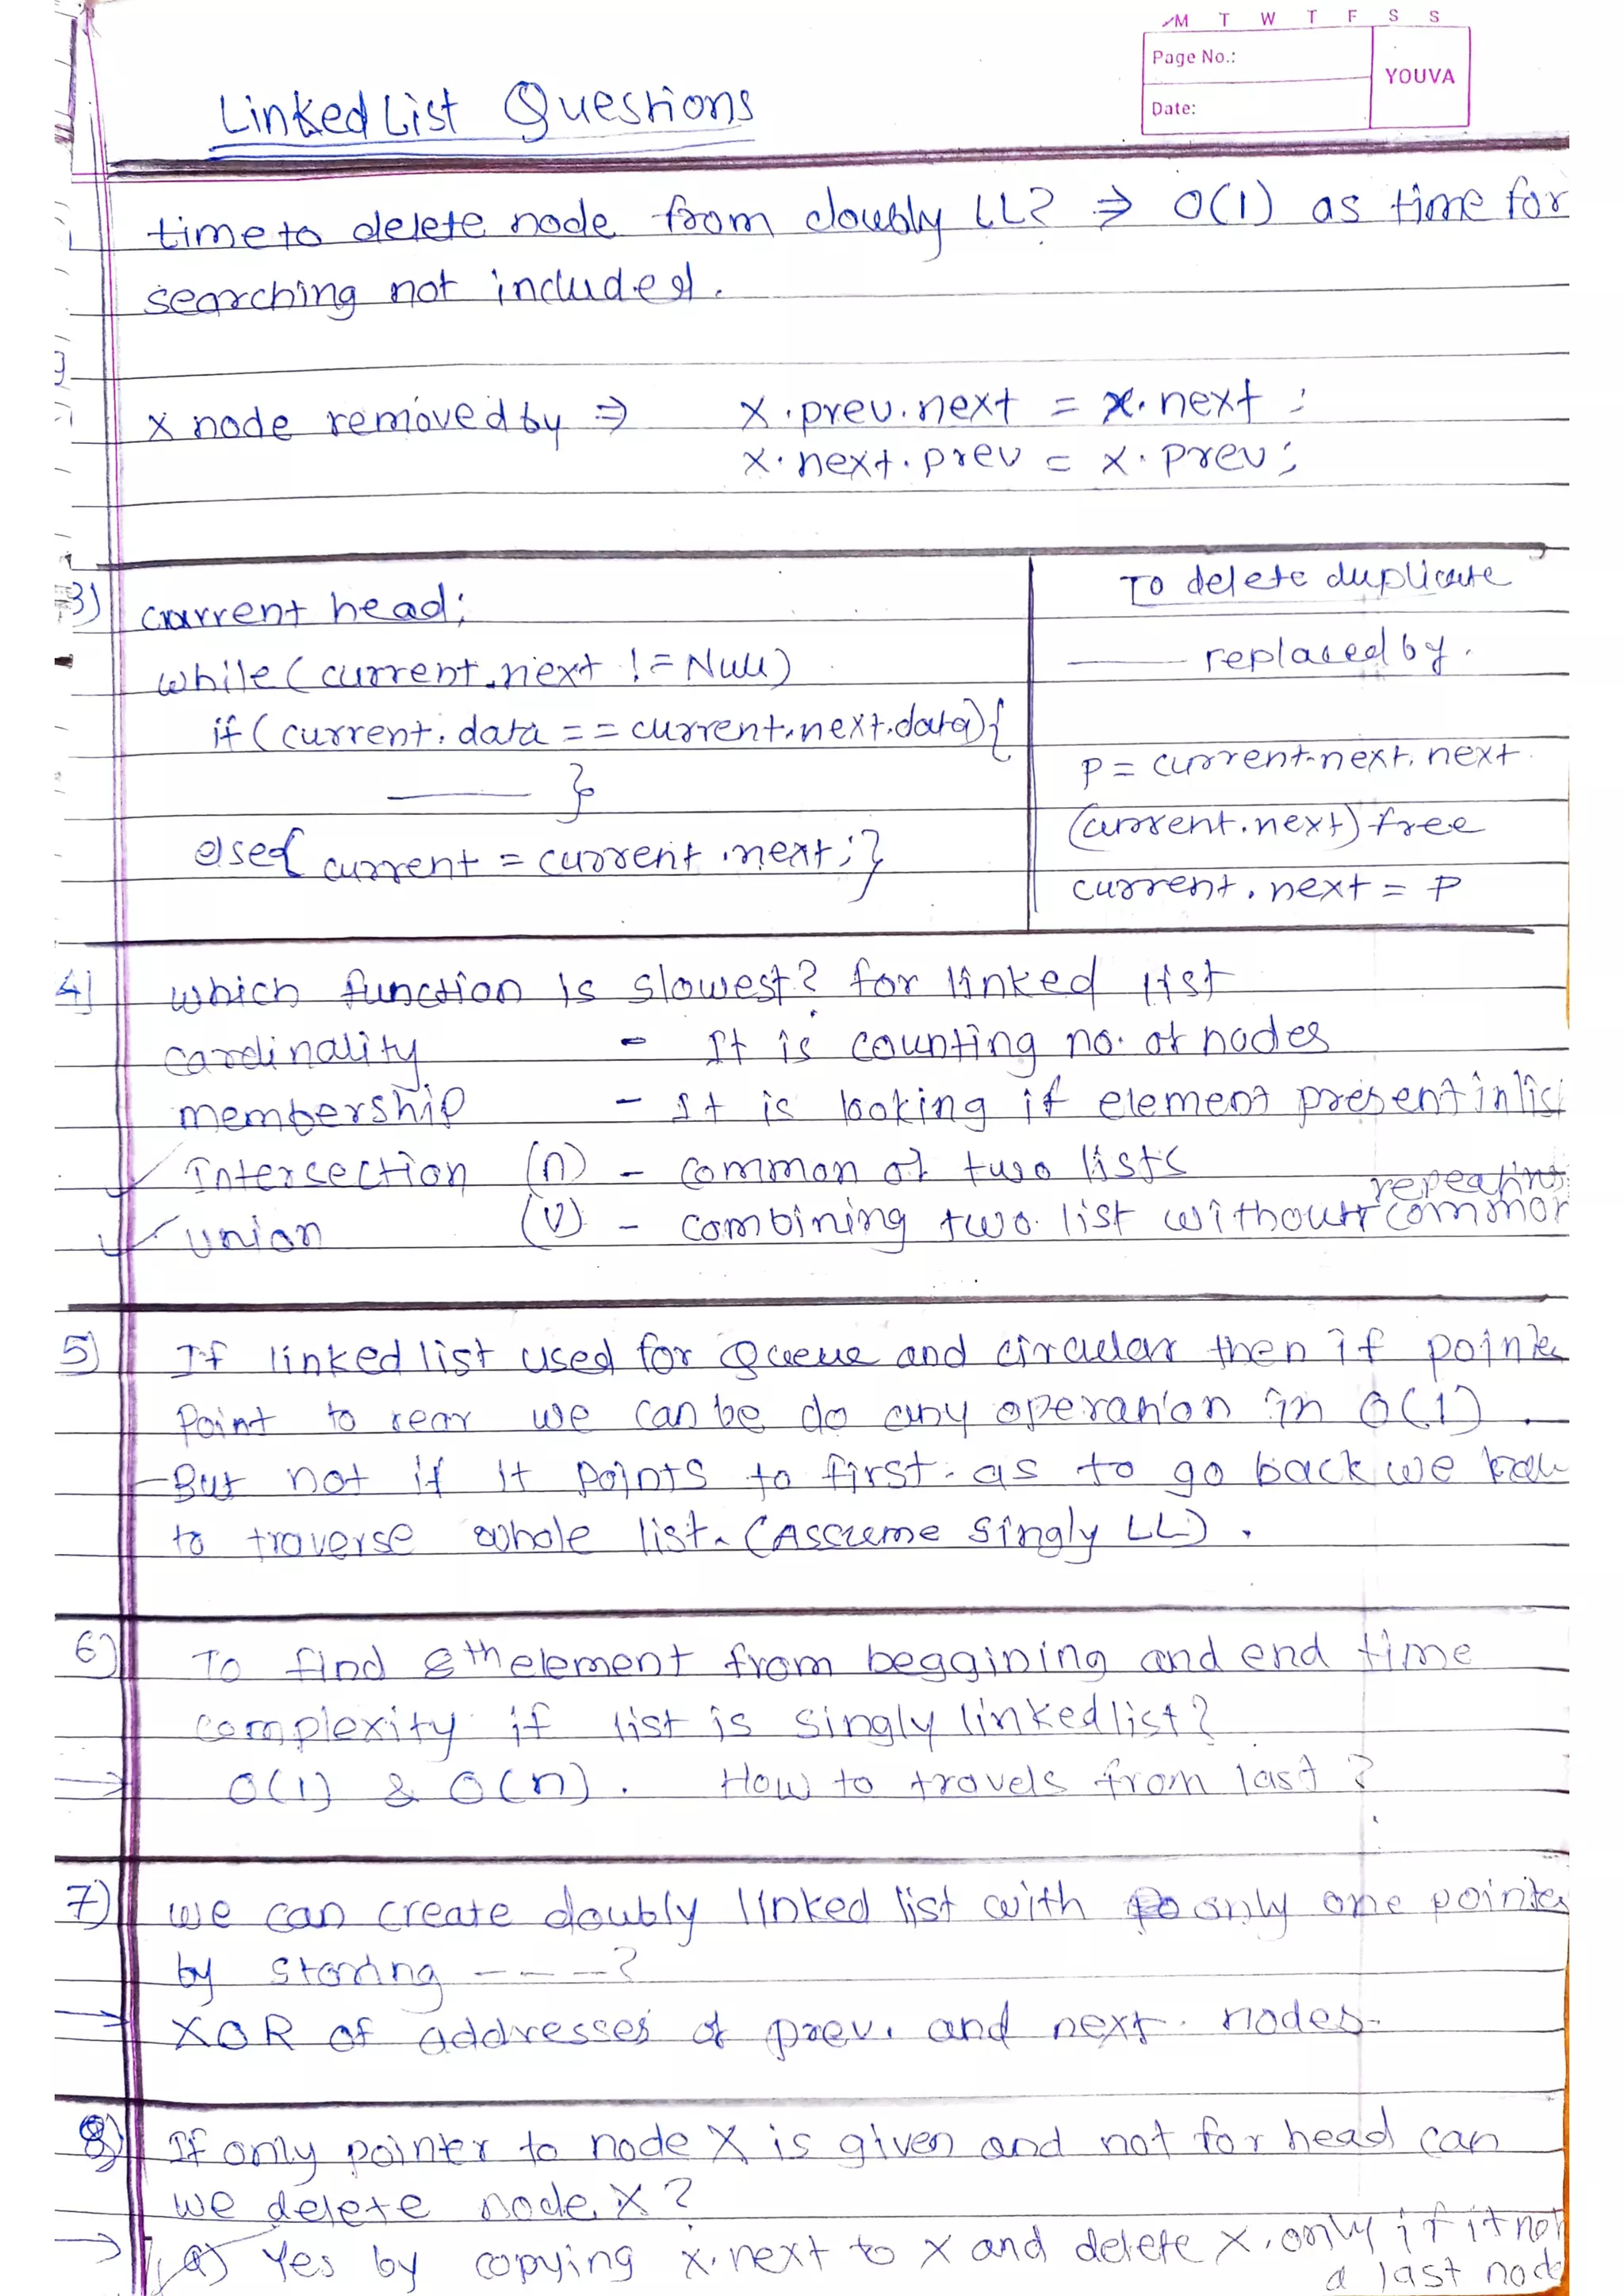 M T W T F S S
Page No.:
YOUVA
Date:
Linked List Questions
time to delete node from doubly LL? ⇒ O(1) as time for
searching not included.
x node removed by ⇒ x.prev.next = x.next ;
x.next.prev = x.prev;
3) current head;
while (current.next != Null)
if (current.data == current.next.data){
——— }
else{ current = current.next;}
To delete duplicate
——— replaced by.
P = current.next.next
(current.next) free
current.next = P
4) which function is slowest? for linked list
cardinality - It is counting no. of nodes
membership - It is looking if element present in lis
✓ Intersection (∩) - common of two lists
repeating
✓ union (U) - combining two list without common
5) If linked list used for Queue and circular then if pointe
Point to rear we can be do any operation in O(1).
- But not if it points to first. as to go back we
to traverse whole list. (Assume singly LL).
6) To find 8th element from beggining and end time
complexity if list is singly linked list?
→ O(1) & O(n). How to travels from last?
7) we can create doubly linked list with only one pointer
by storing - - - -?
→ XOR of addresses of prev. and next. nodes.
8) If only pointer to node X is given and not for head can
we delete node X?
→ a) Yes by copying x.next to x and delete x. only if it not
a last node